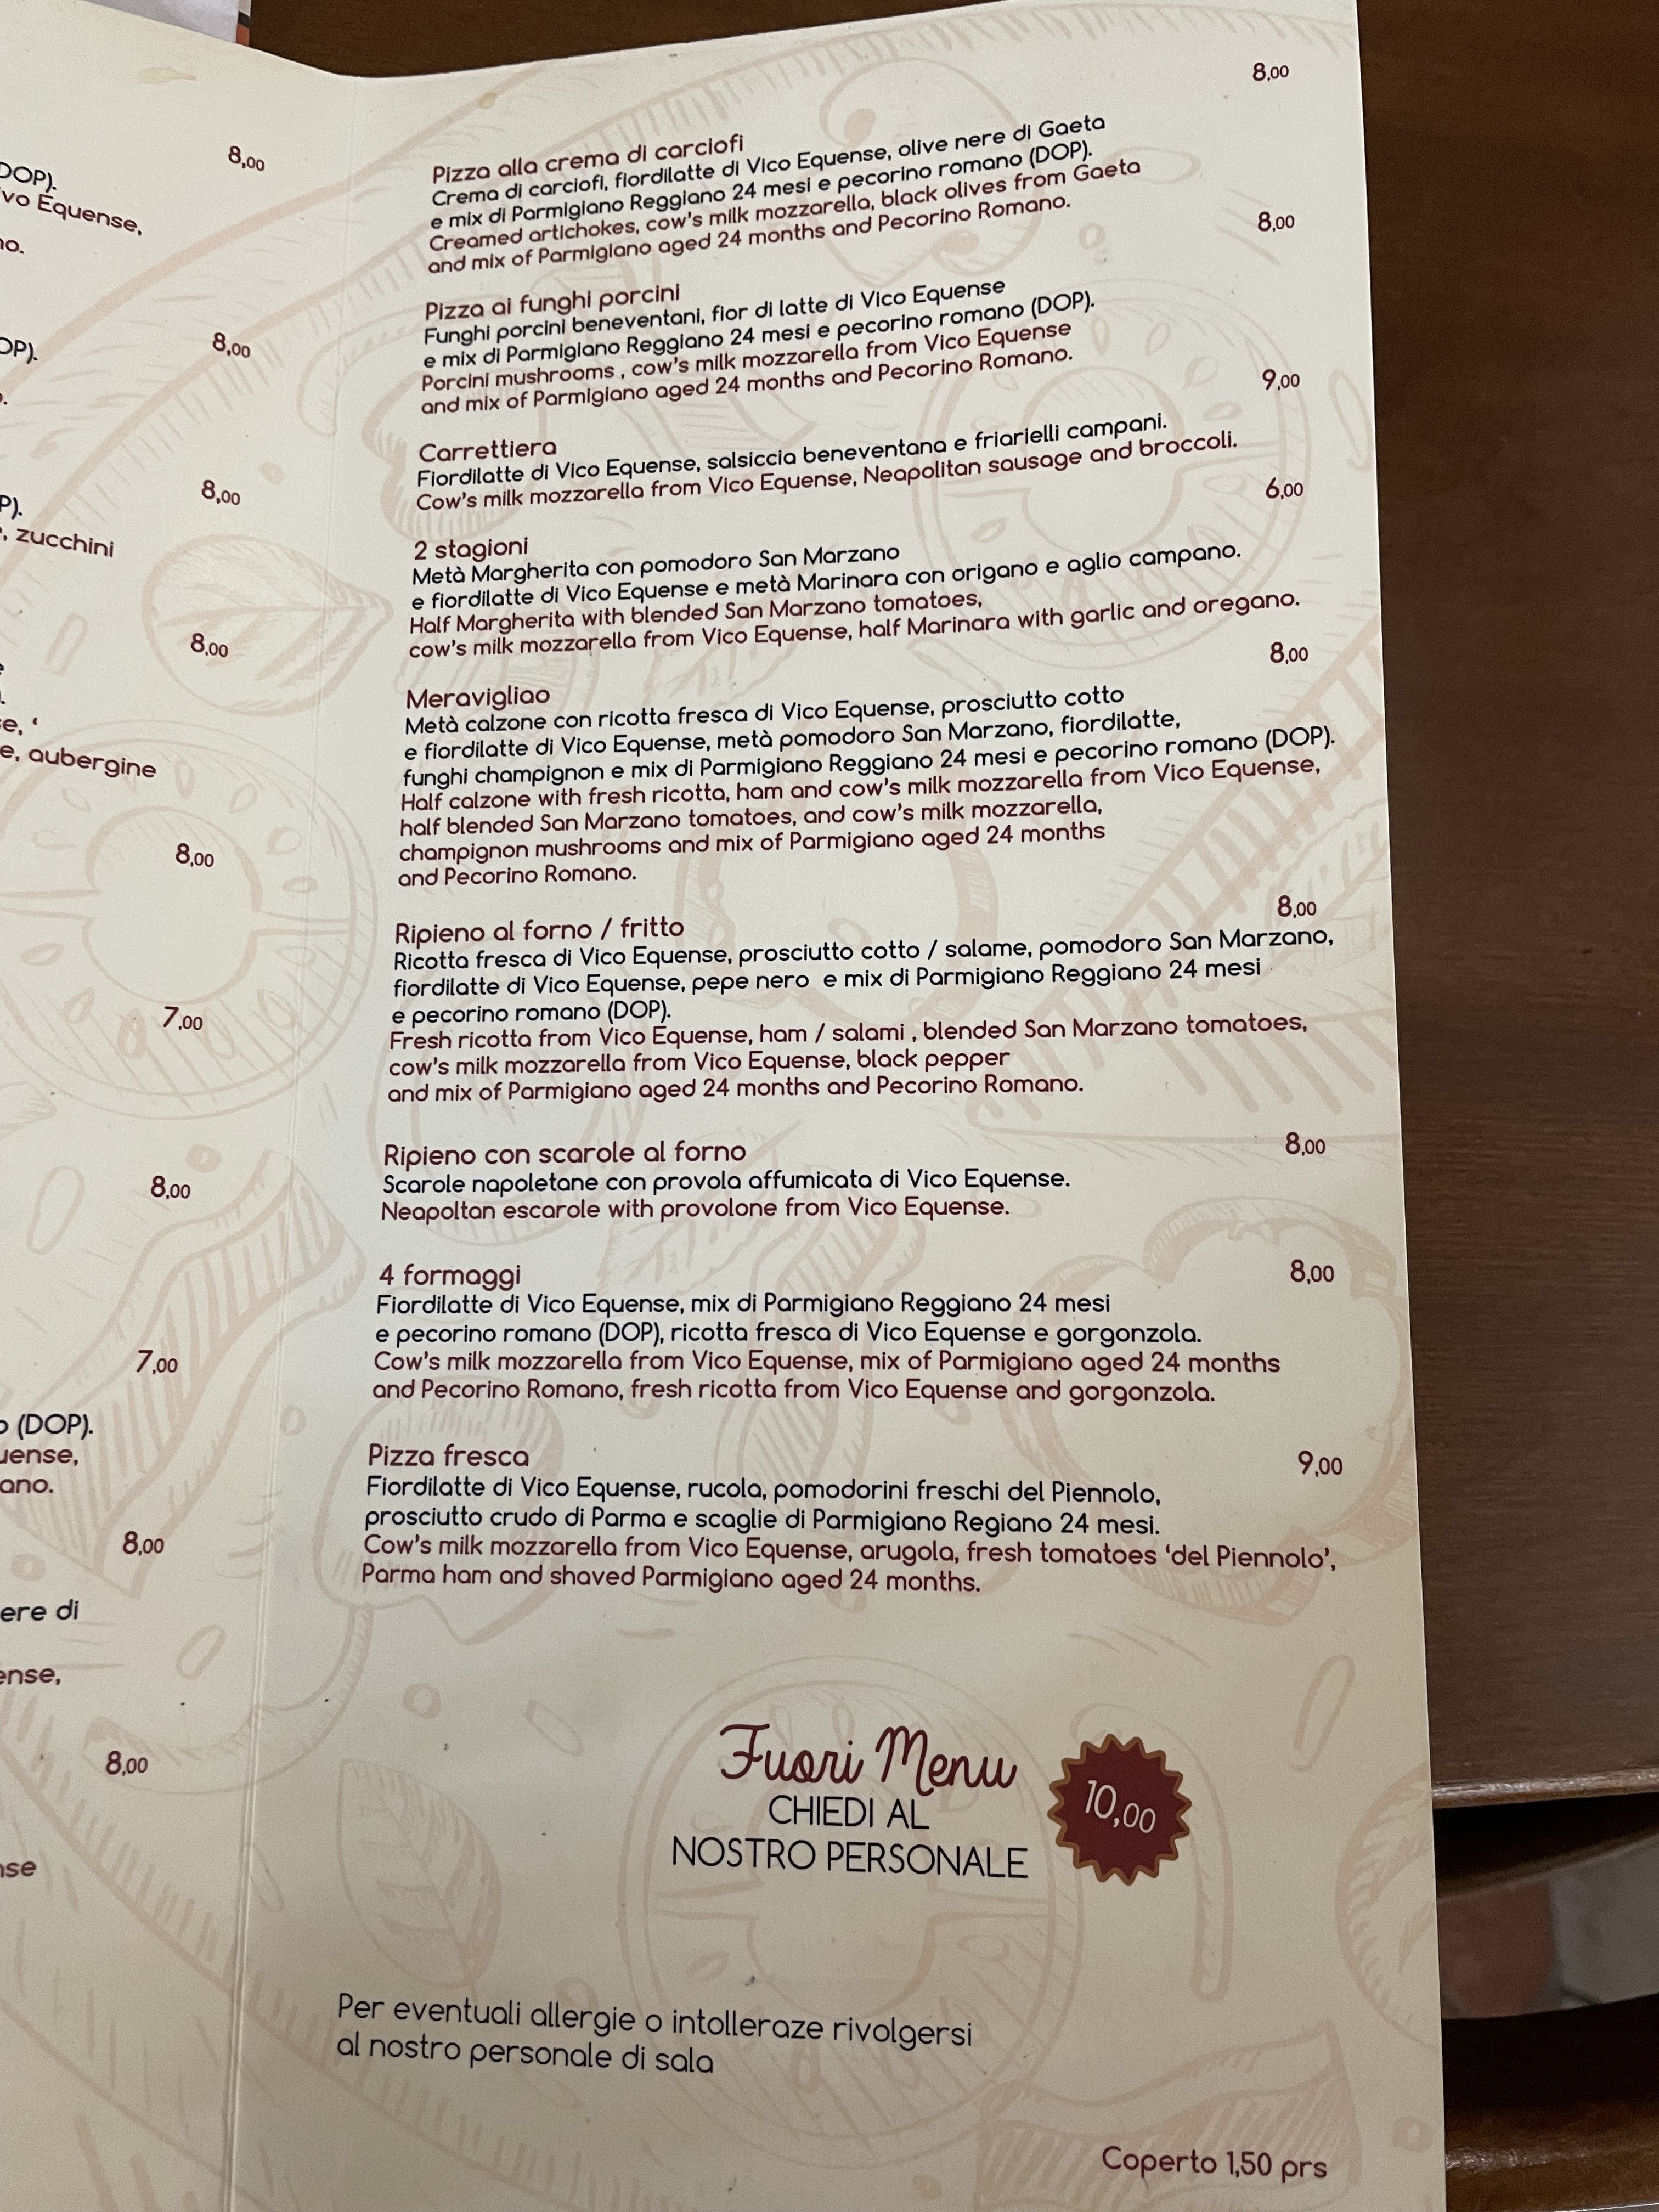 8,00
DOP).
vo Equense,
no.
8,00
OP).
o.
8,00
P).
e, zucchini
8,00
e
).
e, '
e, aubergine
8,00
7,00
8,00
7,00
o (DOP).
uense,
ano.
8,00
ere di
ense,
8,00
nse
8,00
Pizza alla crema di carciofi
Crema di carciofi, fiordilatte di Vico Equense, olive nere di Gaeta
e mix di Parmigiano Reggiano 24 mesi e pecorino romano (DOP).
Creamed artichokes, cow's milk mozzarella, black olives from Gaeta
and mix of Parmigiano aged 24 months and Pecorino Romano.
8,00
Pizza ai funghi porcini
Funghi porcini beneventani, fior di latte di Vico Equense
e mix di Parmigiano Reggiano 24 mesi e pecorino romano (DOP).
Porcini mushrooms , cow's milk mozzarella from Vico Equense
and mix of Parmigiano aged 24 months and Pecorino Romano.
9,00
Carrettiera
Fiordilatte di Vico Equense, salsiccia beneventana e friarielli campani.
Cow's milk mozzarella from Vico Equense, Neapolitan sausage and broccoli.
6,00
2 stagioni
Metà Margherita con pomodoro San Marzano
e fiordilatte di Vico Equense e metà Marinara con origano e aglio campano.
Half Margherita with blended San Marzano tomatoes,
cow's milk mozzarella from Vico Equense, half Marinara with garlic and oregano.
8,00
Meravigliao
Metà calzone con ricotta fresca di Vico Equense, prosciutto cotto
e fiordilatte di Vico Equense, metà pomodoro San Marzano, fiordilatte,
funghi champignon e mix di Parmigiano Reggiano 24 mesi e pecorino romano (DOP).
Half calzone with fresh ricotta, ham and cow's milk mozzarella from Vico Equense,
half blended San Marzano tomatoes, and cow's milk mozzarella,
champignon mushrooms and mix of Parmigiano aged 24 months
and Pecorino Romano.
Ripieno al forno / fritto 8,00
Ricotta fresca di Vico Equense, prosciutto cotto / salame, pomodoro San Marzano,
fiordilatte di Vico Equense, pepe nero e mix di Parmigiano Reggiano 24 mesi
e pecorino romano (DOP).
Fresh ricotta from Vico Equense, ham / salami , blended San Marzano tomatoes,
cow's milk mozzarella from Vico Equense, black pepper
and mix of Parmigiano aged 24 months and Pecorino Romano.
Ripieno con scarole al forno 8,00
Scarole napoletane con provola affumicata di Vico Equense.
Neapoltan escarole with provolone from Vico Equense.
4 formaggi 8,00
Fiordilatte di Vico Equense, mix di Parmigiano Reggiano 24 mesi
e pecorino romano (DOP), ricotta fresca di Vico Equense e gorgonzola.
Cow's milk mozzarella from Vico Equense, mix of Parmigiano aged 24 months
and Pecorino Romano, fresh ricotta from Vico Equense and gorgonzola.
Pizza fresca 9,00
Fiordilatte di Vico Equense, rucola, pomodorini freschi del Piennolo,
prosciutto crudo di Parma e scaglie di Parmigiano Regiano 24 mesi.
Cow's milk mozzarella from Vico Equense, arugola, fresh tomatoes 'del Piennolo',
Parma ham and shaved Parmigiano aged 24 months.
Fuori Menu
CHIEDI AL
NOSTRO PERSONALE
10,00
Per eventuali allergie o intolleraze rivolgersi
al nostro personale di sala
Coperto 1,50 prs